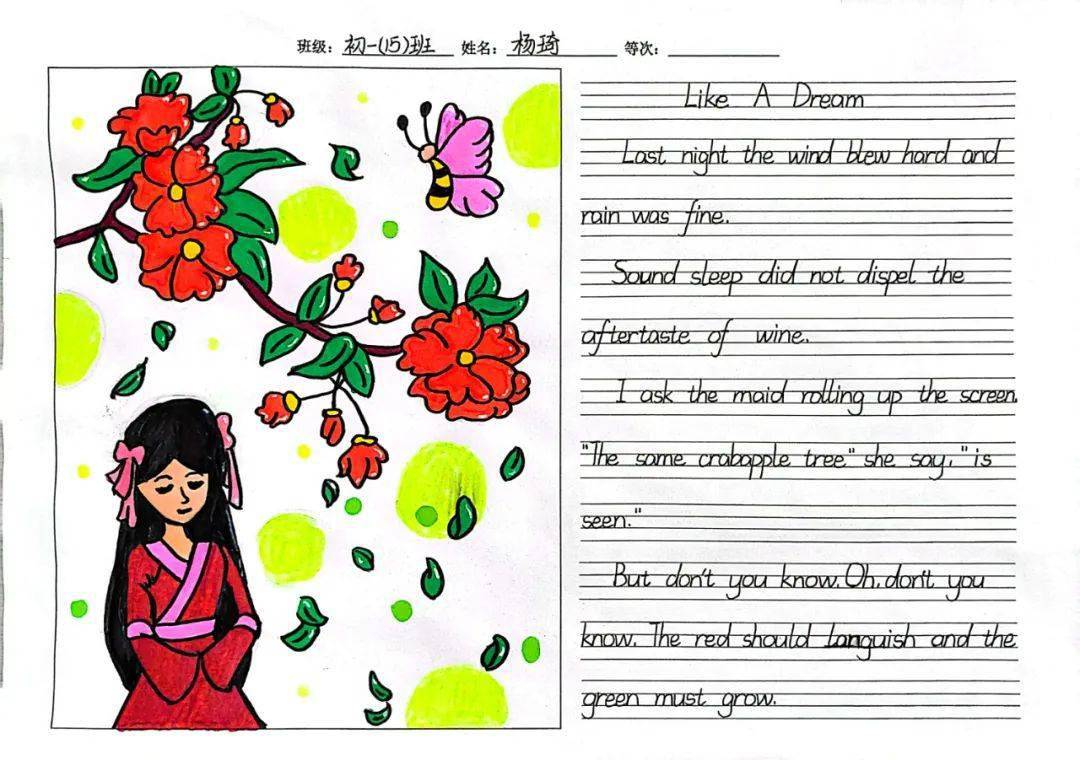 班级: 初一(15)班 姓名: 杨琦 等次:
Like A Dream
Last night the wind blew hard and
rain was fine.
Sound sleep did not dispel the
aftertaste of wine.
I ask the maid rolling up the screen.
"The same crabapple tree" she say, "is
seen."
But don't you know. Oh, don't you
know. The red should languish and the
green must grow.